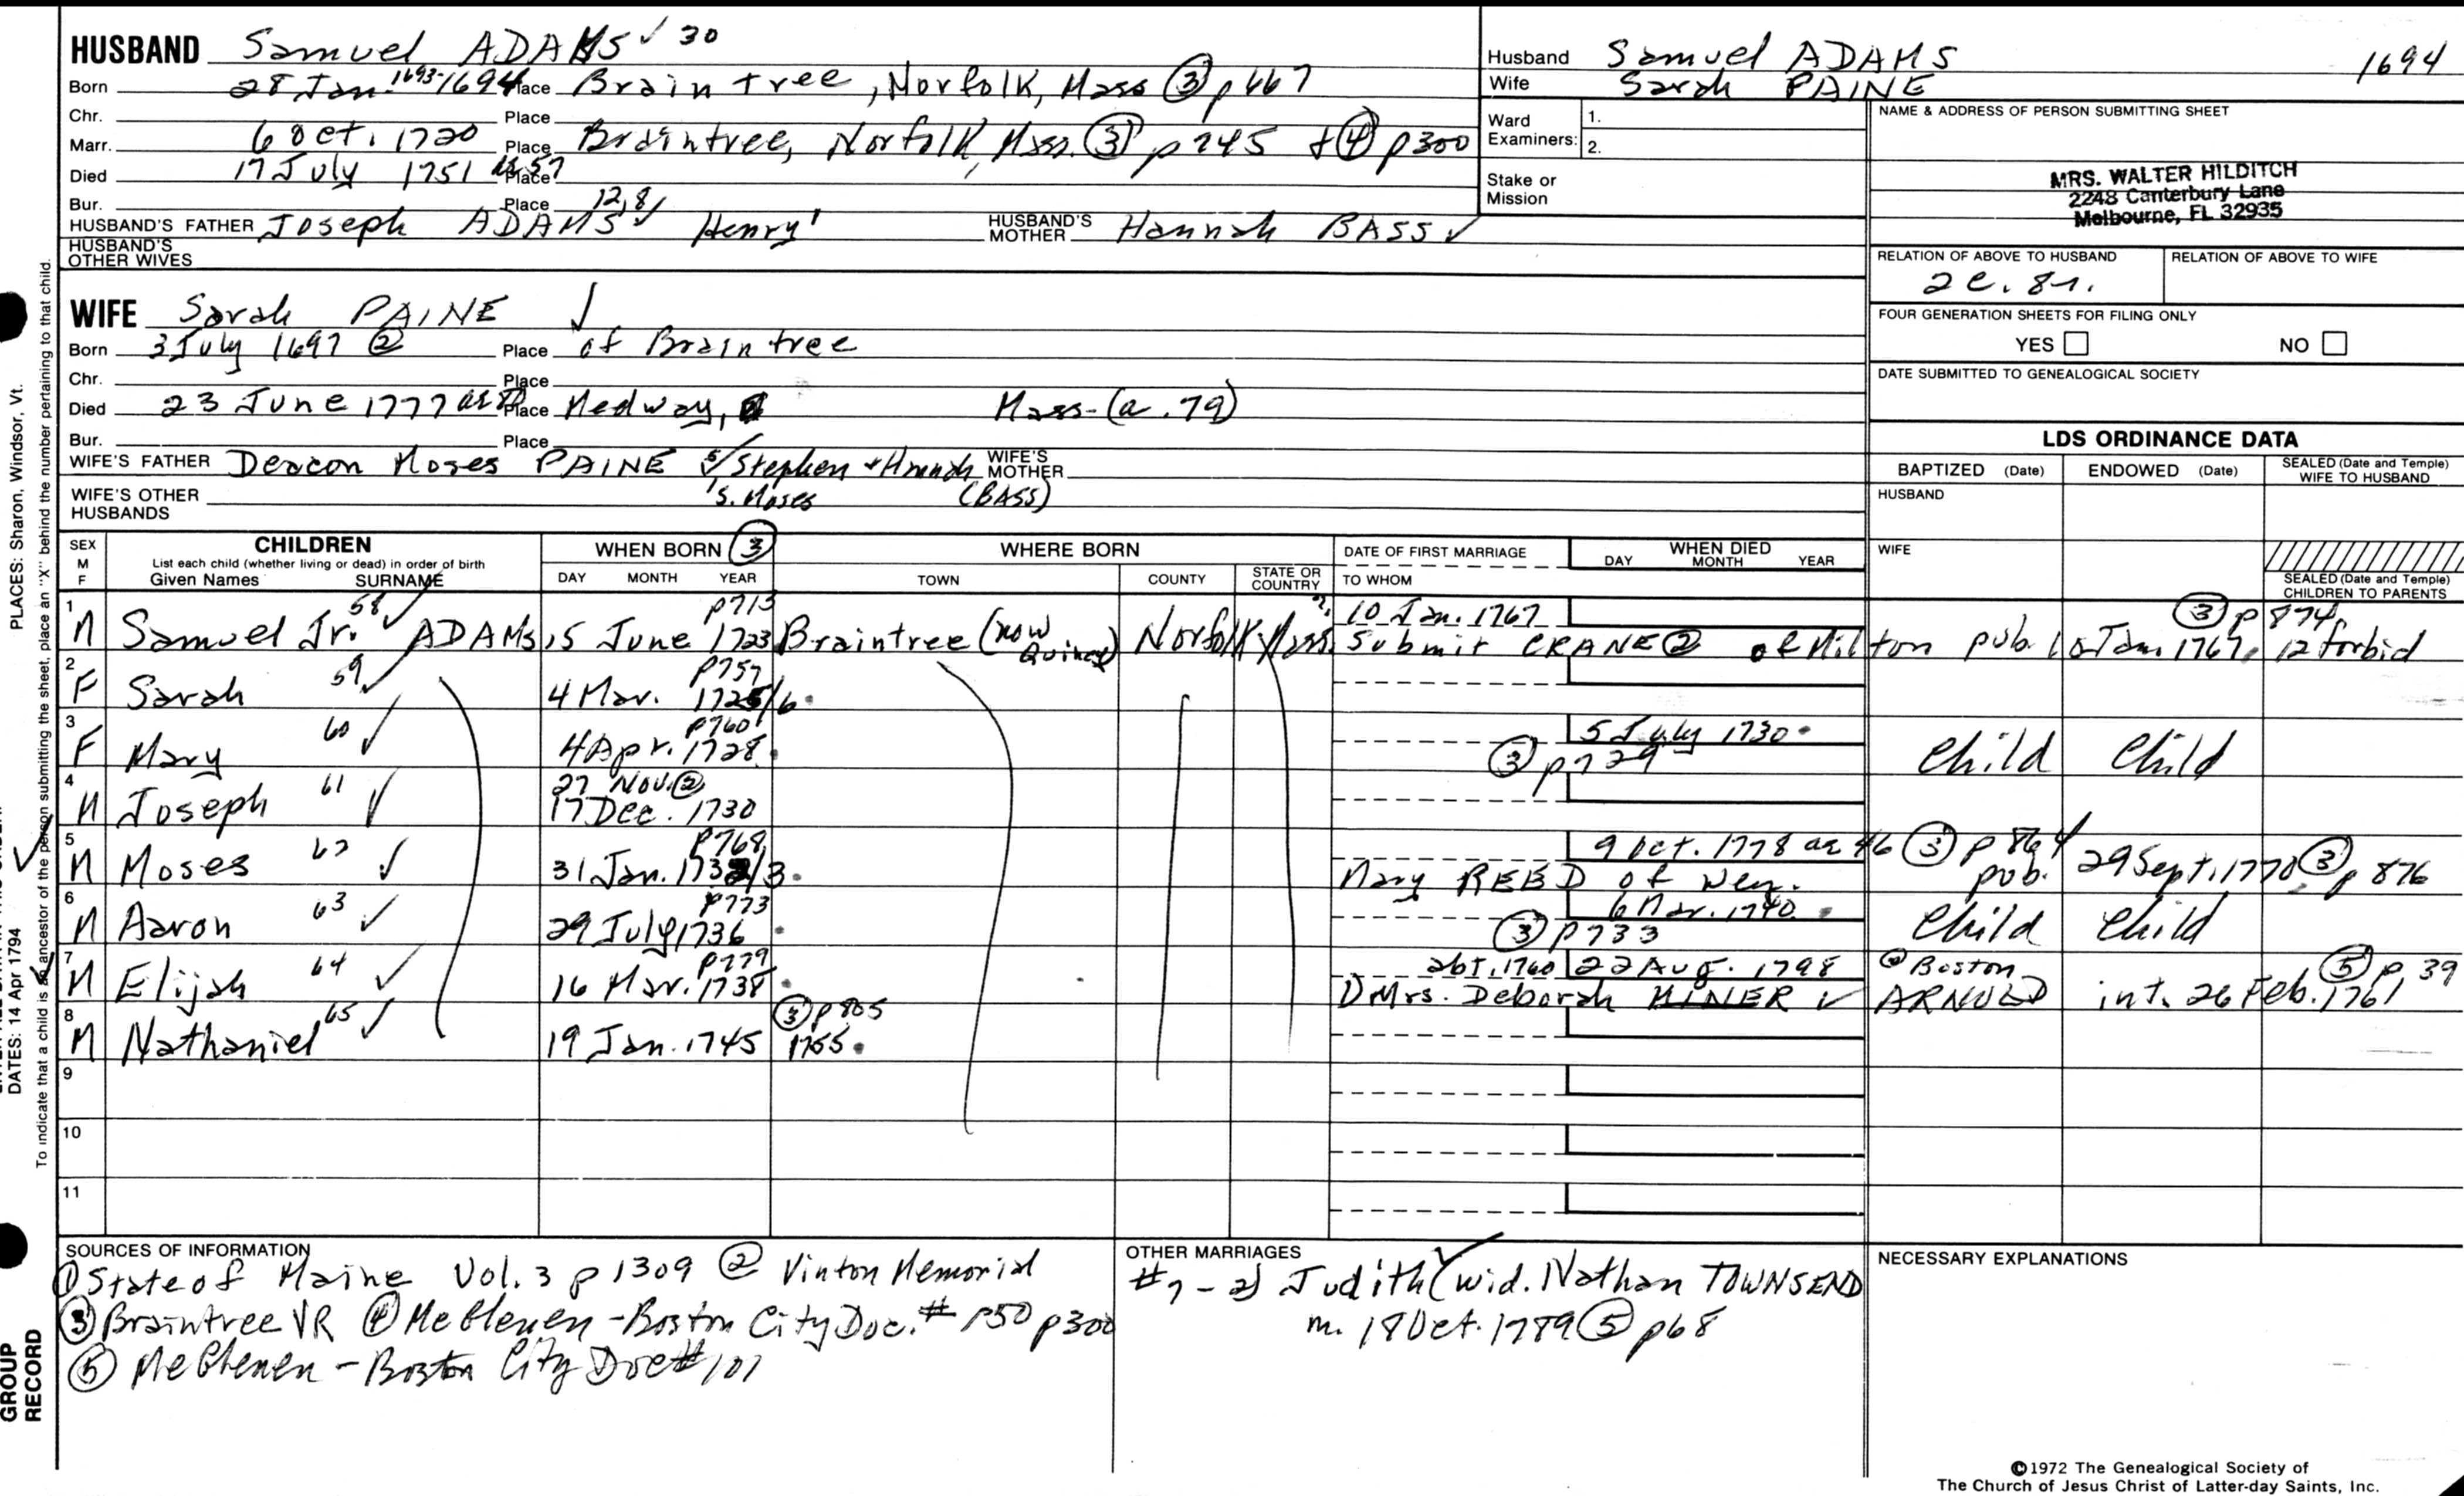 HUSBAND Samuel ADAMS ✓ 30
Born 28 Jan. 1693-1694 Place Braintree, Norfolk, Mass ③ p 667
Chr. Place
Marr. 6 Oct. 1720 Place Braintree, Norfolk, Mass. ③ p 745 + ④ p300
Died 17 July 1751 ae 57 Place
Bur. Place
HUSBAND'S FATHER Joseph ADAMS ✓ 12,8/ Henry' HUSBAND'S MOTHER Hannah BASS ✓
HUSBAND'S OTHER WIVES
Husband Samuel ADAMS 1694
Wife Sarah PAINE
Ward Examiners: 1.
2.
Stake or Mission
NAME & ADDRESS OF PERSON SUBMITTING SHEET
MRS. WALTER HILDITCH
2248 Canterbury Lane
Melbourne, FL 32935
RELATION OF ABOVE TO HUSBAND RELATION OF ABOVE TO WIFE
2c. 8r.
FOUR GENERATION SHEETS FOR FILING ONLY
YES NO
DATE SUBMITTED TO GENEALOGICAL SOCIETY
WIFE Sarah PAINE ✓
Born 3 July 1697 ② Place of Braintree
Chr. Place
Died 23 June 1777 Place Medway, Mass- (a. 79)
Bur. Place
WIFE'S FATHER Deacon Moses PAINE 5/ Stephen + Hannah WIFE'S MOTHER
WIFE'S OTHER HUSBANDS 's. Moses (BASS)
LDS ORDINANCE DATA
BAPTIZED (Date) ENDOWED (Date) SEALED (Date and Temple) WIFE TO HUSBAND
HUSBAND
WIFE
SEALED (Date and Temple) CHILDREN TO PARENTS
SEX M F CHILDREN List each child (whether living or dead) in order of birth Given Names SURNAME
WHEN BORN ③ DAY MONTH YEAR
WHERE BORN TOWN COUNTY STATE OR COUNTRY
DATE OF FIRST MARRIAGE TO WHOM
WHEN DIED DAY MONTH YEAR
58 ✓ p713 10 Jan. 1767 ③ p 874
1 M Samuel Jr. ADAMS 15 June 1723 Braintree (now Quincy) Norfolk Mass. Submit CRANE ② of Milton pub. 10 Jan. 1767, 12 forbid
59 ✓ p757
2 F Sarah 4 Mar. 1725/6.
60 ✓ p760 5 July 1730.
3 F Mary 4 Apr. 1728. ③ p729 Child Child
61 ✓ 27 Nov. ②
4 M Joseph 17 Dec. 1730
62 ✓ p768 9 Oct. 1778 ae 46 ③ p 864
5 M Moses 31 Jan. 1732/3. Mary REED of Wey. pub. 29 Sept. 1770 ③ p 876
63 ✓ p773 6 Mar. 1740.
6 M Aaron 29 July 1736. ③ p733 Child Child
64 ✓ p779 abt. 1760 22 Aug. 1798 @ Boston ⑤ p 39
7 M Elijah 16 Mar. 1738. 1) Mrs. Deborah MINER ✓ ARNOLD int. 26 Feb. 1761
65 ✓ ③ p 805
8 M Nathaniel 19 Jan. 1745 1755.
9
10
11
SOURCES OF INFORMATION
① State of Maine Vol. 3 p 1309 ② Vinton Memorial
③ Braintree VR ④ McGlenen - Boston City Doc. # 150 p300
⑤ McGlenen - Boston City Doc # 101
OTHER MARRIAGES
#7 - 2) Judith (wid. Nathan TOWNSEND
m. 18 Oct. 1789 ⑤ p68
NECESSARY EXPLANATIONS
©1972 The Genealogical Society of
The Church of Jesus Christ of Latter-day Saints, Inc.
PLACES: Sharon, Windsor, Vt.
DATES: 14 Apr 1794
To indicate that a child is an ancestor of the person submitting the sheet, place an "X" behind the number pertaining to that child.
GROUP
RECORD